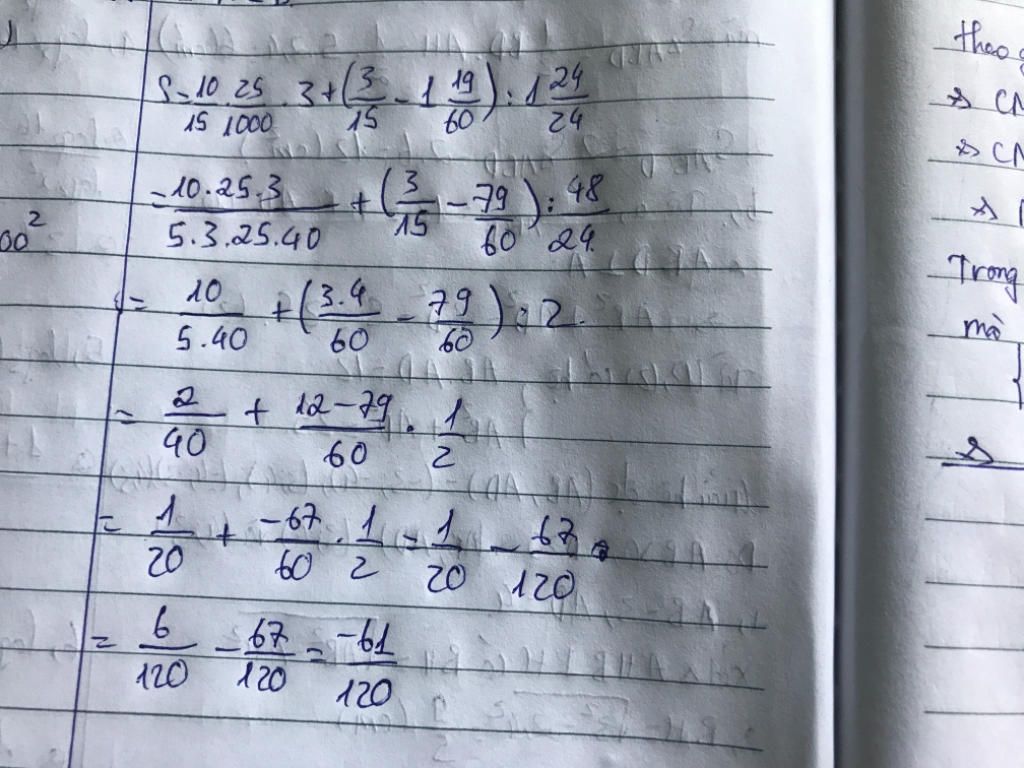 S = \frac{10}{15} . \frac{25}{1000} . 3 + ( \frac{3}{15} - 1 \frac{19}{60} ) : 1 \frac{24}{24}
= \frac{10.25.3}{5.3.25.40} + ( \frac{3}{15} - \frac{79}{60} ) : \frac{48}{24}
00²
= \frac{10}{5.40} + ( \frac{3.4}{60} - \frac{79}{60} ) : 2.
= \frac{2}{40} + \frac{12-79}{60} . \frac{1}{2}
= \frac{1}{20} + \frac{-67}{60} . \frac{1}{2} = \frac{1}{20} - \frac{67}{120}
= \frac{6}{120} - \frac{67}{120} = \frac{-61}{120}
theo
Trong
mà